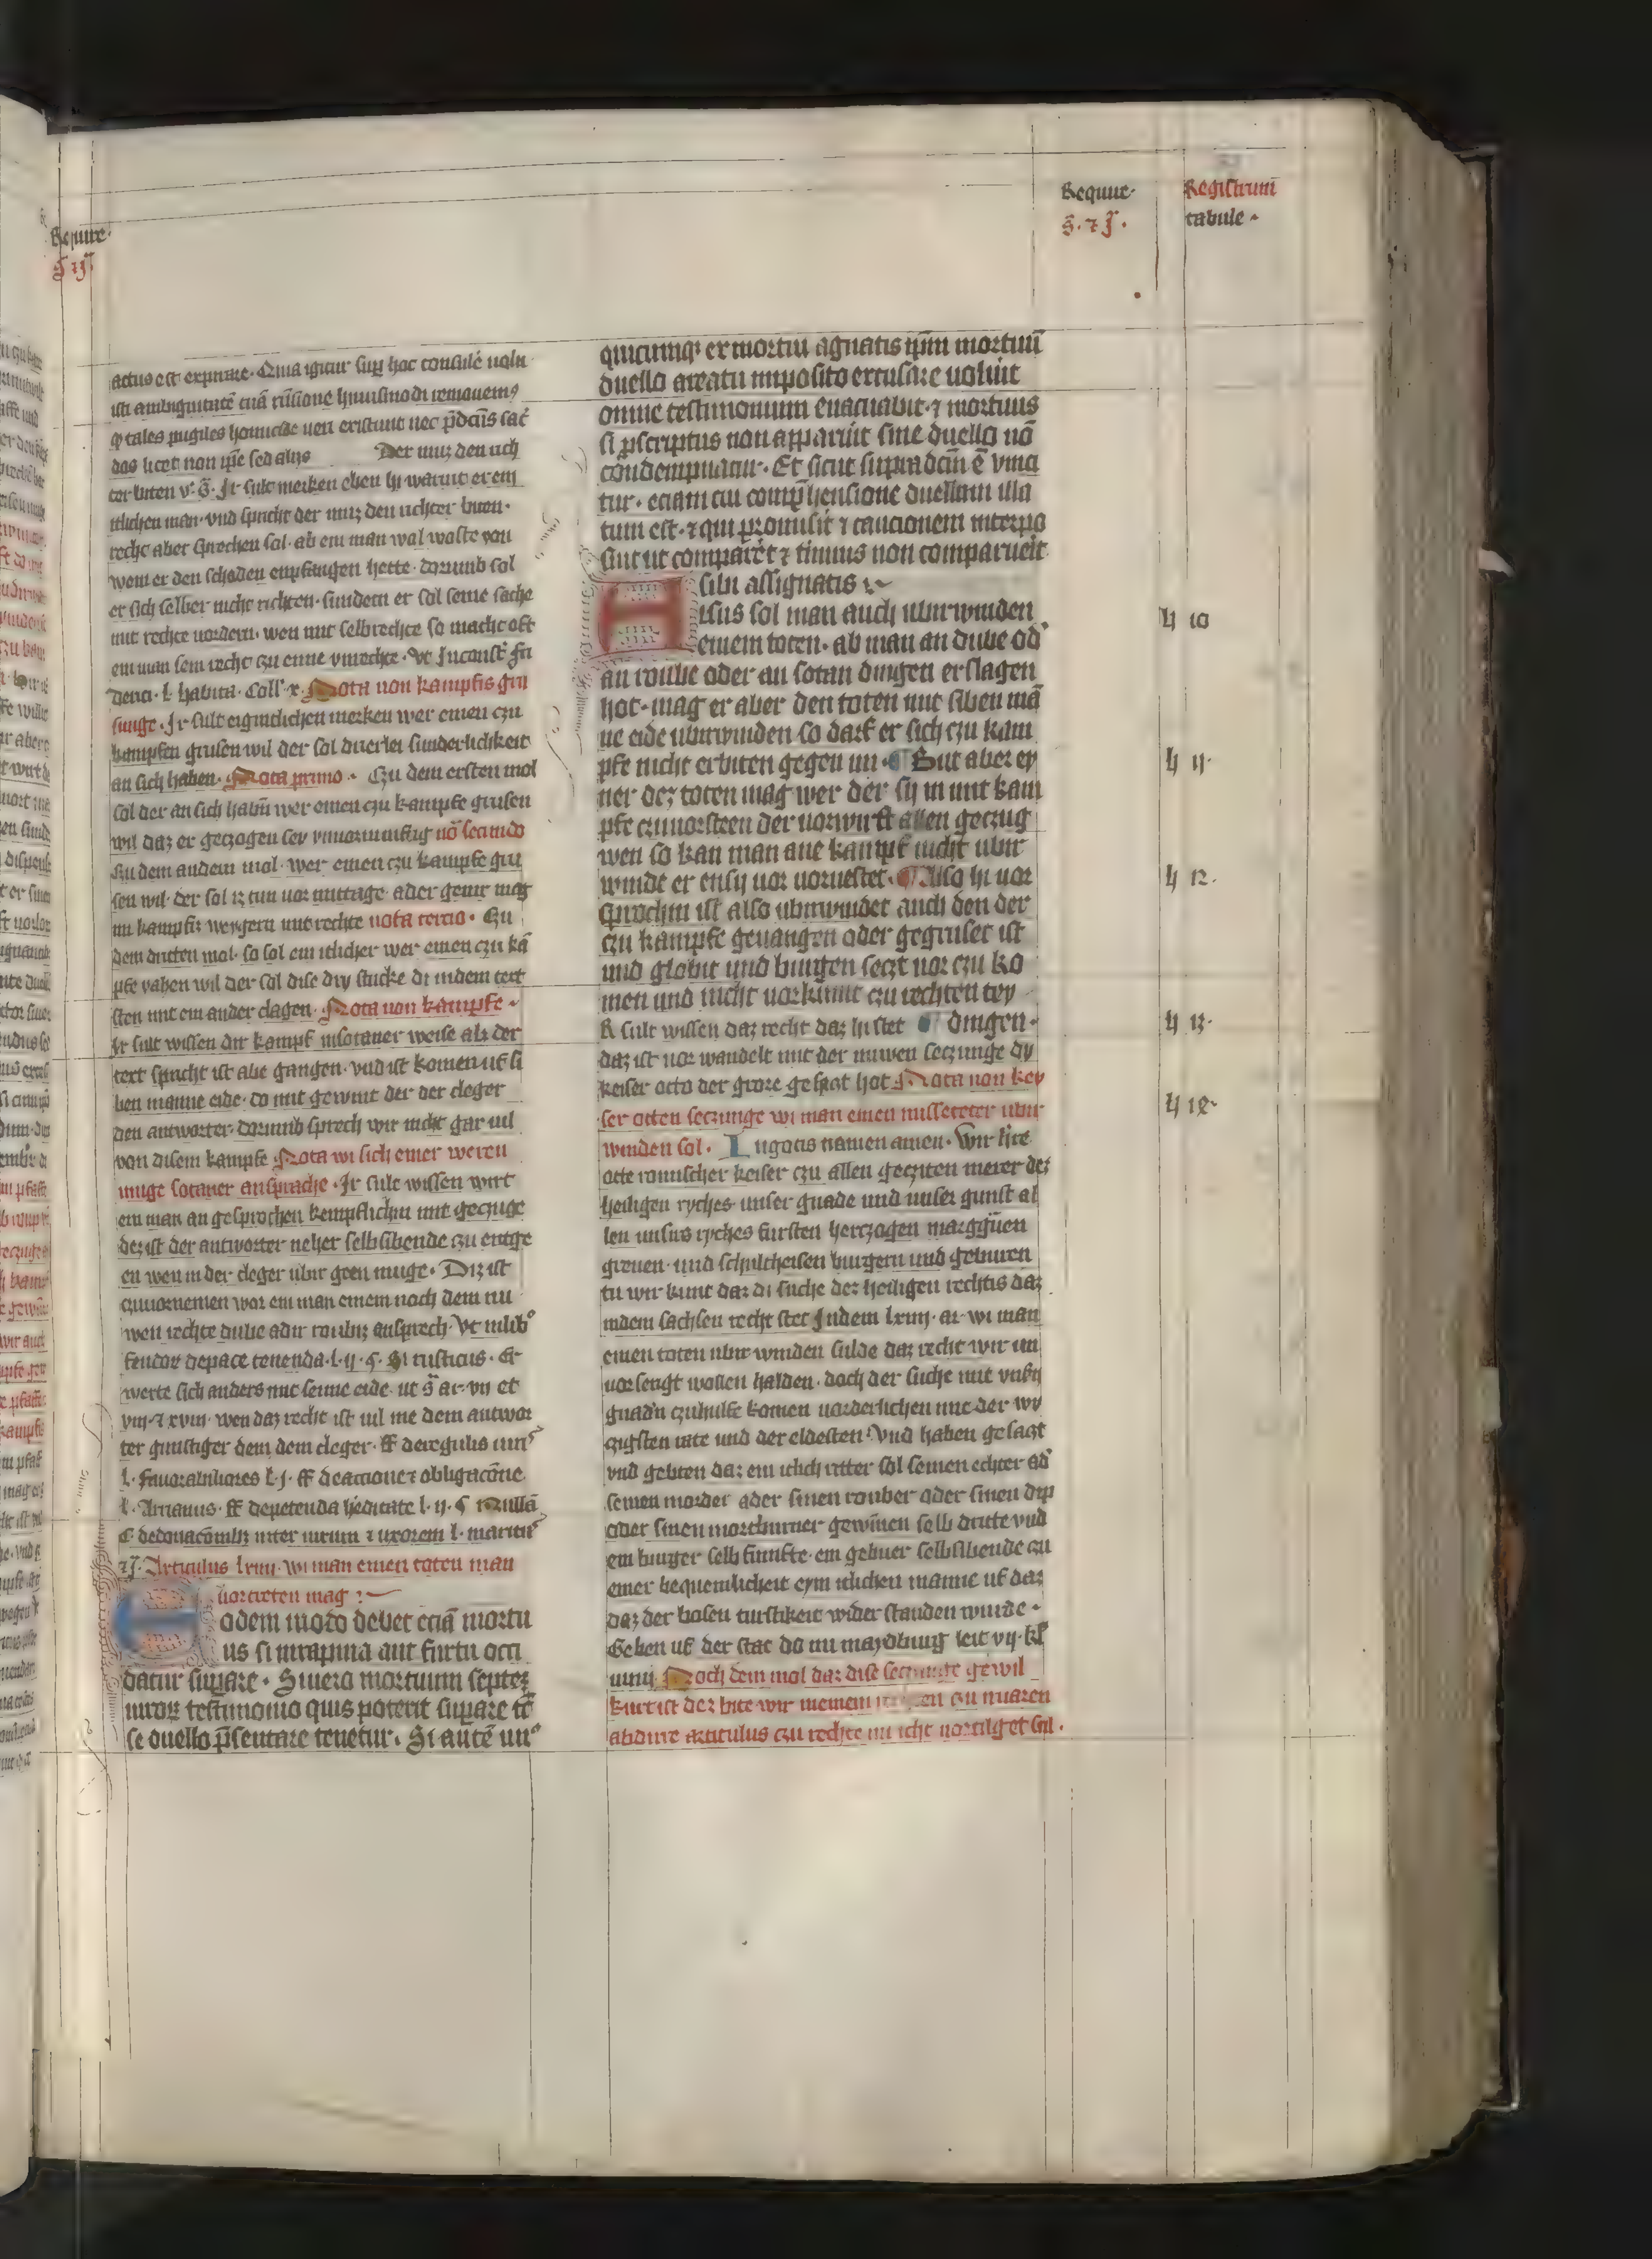 Require
Registrum
tabule
actus est expurare. Quia igitur sup hoc consulē uolu
isti ambiguitatē tuā rūsione huiusmodi remouem9
ꝙ tales pugiles homicide ueri existunt nec p̄dcās sac̄
dos licet non ip̄e sed alius Der muz den rich
ter biten v. s̄. Ir sult merken eben hi warumt er em
itlichen man. vnd spricht der muz den richter biten.
recht aber sprechen sol. ab ein man wal woste von
wem er den schaden enpfangen hette. dorumb sol
er sich selber nicht richten. sundern er sol seine sache
mit rechte uordern. wen mit selbrechte so macht oft
ein man sein recht czu eime vnrechte. Vt in
l. habita. Coll. x. Nota uon kampfis gru
sunge. Ir sult eigintlichen merken wer einen czu
kampfen grusen wil der sol drierlei sunderlichkeit
an sich haben. Nota primo. Czu dem ersten mol
sol der an sich habū wer einen czu kampfe grusen
wil daz er geczogen sey vnuornunftig nō secundo
Czu dem andern mol. wer einen czu kampfe gru
sen wil. der sol iz tun uor mittage. ader genir mag
im kampfis weygern mit rechte nota tercio. Czu
dem dritten mol. so sol ein itlicher wer einen czu kā
pfe vahen wil der sol dise dry stucke di indem text
sten mit ein ander clagen. Nota uon kampfe.
Ir sult wissen dir kampf insotaner weise alz der
text spricht ist abe gangen. vnd ist komen uf si
ben manne eide. do mit gewint der der cleger
den antworter. dorumb sprech wir nicht gar uil
von disem kampfe Nota wi sich einer weren
muge sotaner ansprache. Ir sult wissen wirt
ein man angesprochen kempflichin mit geczuge
dez ist der antworter neher selbsibende czu entge
en wen in der cleger ubir geen muge. Diz ist
czuuornemen wor ein man einem noch dem nu
wen rechte dube adir roubiz ansprech. Vt inlib°
feudoꝝ depace tenenda. l. ij. ¶. Si rusticus. Er
werte sich anders mit seime eide. ut s̄ ar. vij et
viij. ⁊ xviij. wen daz recht ist uil me dem antwor
ter gunstiger dem dem cleger. ff deregulis iuri9
l. Fauorabiliores l. j. ff deactione ⁊ obligacōne
l. Arrianus. ff depetenda hēditate l. ij. ¶ Nullā
C. dedonacōnibꝫ inter uirum ⁊ uxorem l. maritus
Articulus lxiiij. wi man einen toten man
uortreten mag :~
Eodem modo debet eciā mortu
us si inrapina aut furtu occi
datur supare. Si uero mortuum septeꝫ
uiroꝝ testimonio quis poterit supare tē
se duello p̄sentare tenetur. Si autē un9
quicunqꝫ ex mortui agnatis ip̄m mortuū
duello areatu imposito excusare uoluit
omne testimonium euacuabit. ⁊ mortuus
si pscriptus non apparuit sine duello nō
condempnatur. Et sicut supradcm̄ ē vinci
tur. eciam cui comphensione duellum illa
tum est. ⁊ qui promisit ⁊ caucionem interpo
suit ut compareret ⁊ timius non comparuerit
sibi assignatis
Husus sol man auch ubirwinden
einem toten. ab man an dube od°
an roube oder an sotan dingen erslagen
hot. mag er aber den toten mit siben mā
ne eide ubirwinden so darf er sich czu kam
pfe nicht erbiten gegen im. ¶ But aber ey
ner dez toten mag wer der sy in mit kam
pfe czuuorsteen der uorwirft allen geczug
wen so kan man ane kampf nicht ubir
winde er ensy uor uoruestet. ¶ Also hi uor
sprochin ist also ubirwindet auch den der
czu kampfe geuangen oder gegruset ist
und globit und burgen seczt uor czu ko
men und nicht uorkumt czu rechten tey
R sult wissen daz recht daz hi stet dingen.
daz ist uor wandelt mit der nuwen seczunge dy
keiser octo der groze gesaczt hot Nota uon key
ser otten seczunge wi man einen misseteter ubir
winden sol. In gotis namen amen. Wir h're
otte romischer keiser czu allen geczeiten merer dez
heiligen ryches. unser gnade und unser gunst al
len unsirs ryches fursten herczogen marggūen
greuen. und schultheisen burgern und geburen
tu wir kunt daz di suche dez heiligen rechtis daz
indem sachsen recht stet Indem lxiiij. ar. wi man
einen toten ubir winden sulde daz recht wir un
uorserigt wollen halden. doch der suche mit vnsin
gnad'n czuhulfe komen uorderlichen mit der wy
czigsten rate und der eldesten. Vnd haben gesaczt
vnd gebiten daz ein itlich ritter sol seinen echter ad°
seinen morder ader sinen rouber oder sinen dip
oder sinen mortburner gewinnen selb dritte vnd
ein burger selb funfte. ein gebuer selbsibende czu
einer bequemlicheit eym itlichen manne uf daz
daz der bosen turstikeit wider standen wurde.
Geben uf der stat do nu maydburg leit vij. kl̄
iunij. Noch dem mol daz dise seczunge gewil
kurt ist dez bite wir czu nuaren
abdirre articulus czu rechte nu icht uortilget sul.
h 10
h 11.
h 12.
h 13.
h 14.